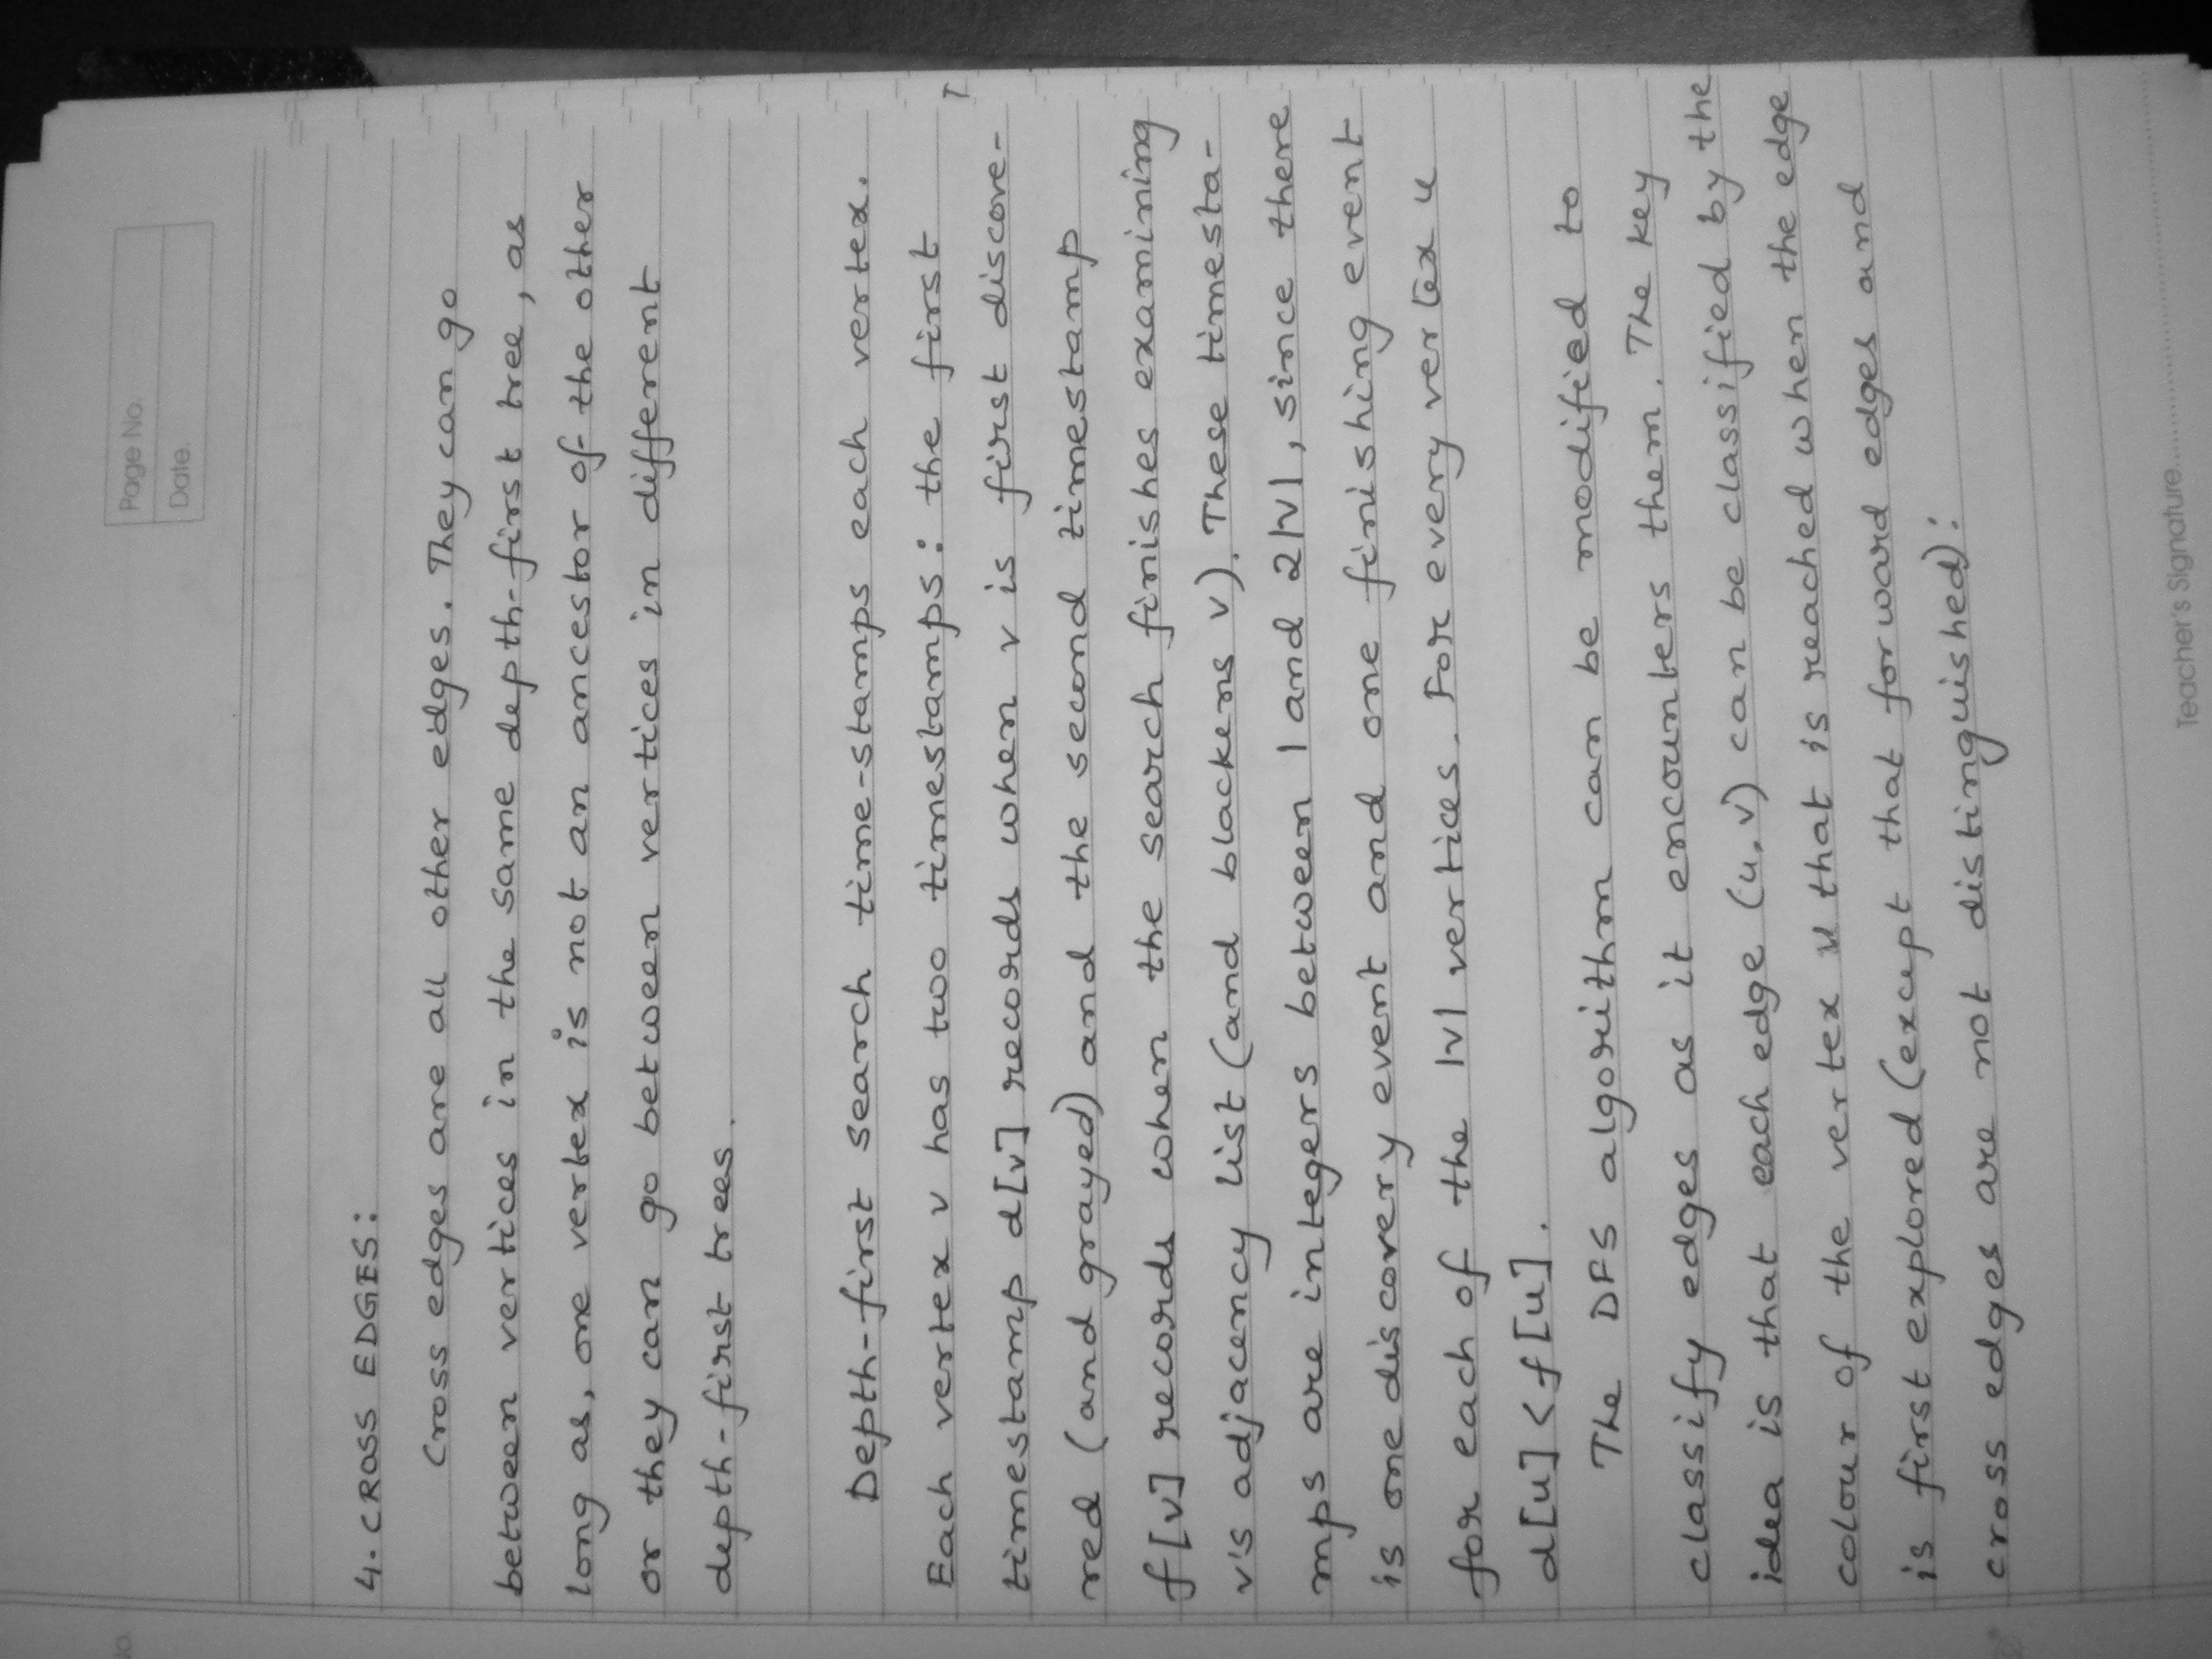 Page No.
Date.
4. CROSS EDGES:
Cross edges are all other edges. They can go
between vertices in the same depth-first tree, as
long as, one vertex is not an ancestor of the other
or they can go between vertices in different
depth-first trees.
Depth-first search time-stamps each vertex.
Each vertex v has two timestamps: the first
timestamp d[v] records when v is first discove-
red (and grayed) and the second timestamp
f[v] records when the search finishes examining
v's adjacency list (and blackens v). These timesta-
mps are integers between 1 and 2|V|, since there
is one discovery event and one finishing event
for each of the |V| vertices. For every vertex u
d[u] < f[u].
The DFS algorithm can be modified to
classify edges as it encounters them. The key
idea is that each edge (u,v) can be classified by the
colour of the vertex that is reached when the edge
is first explored (except that forward edges and
cross edges are not distinguished):
Teacher's Signature